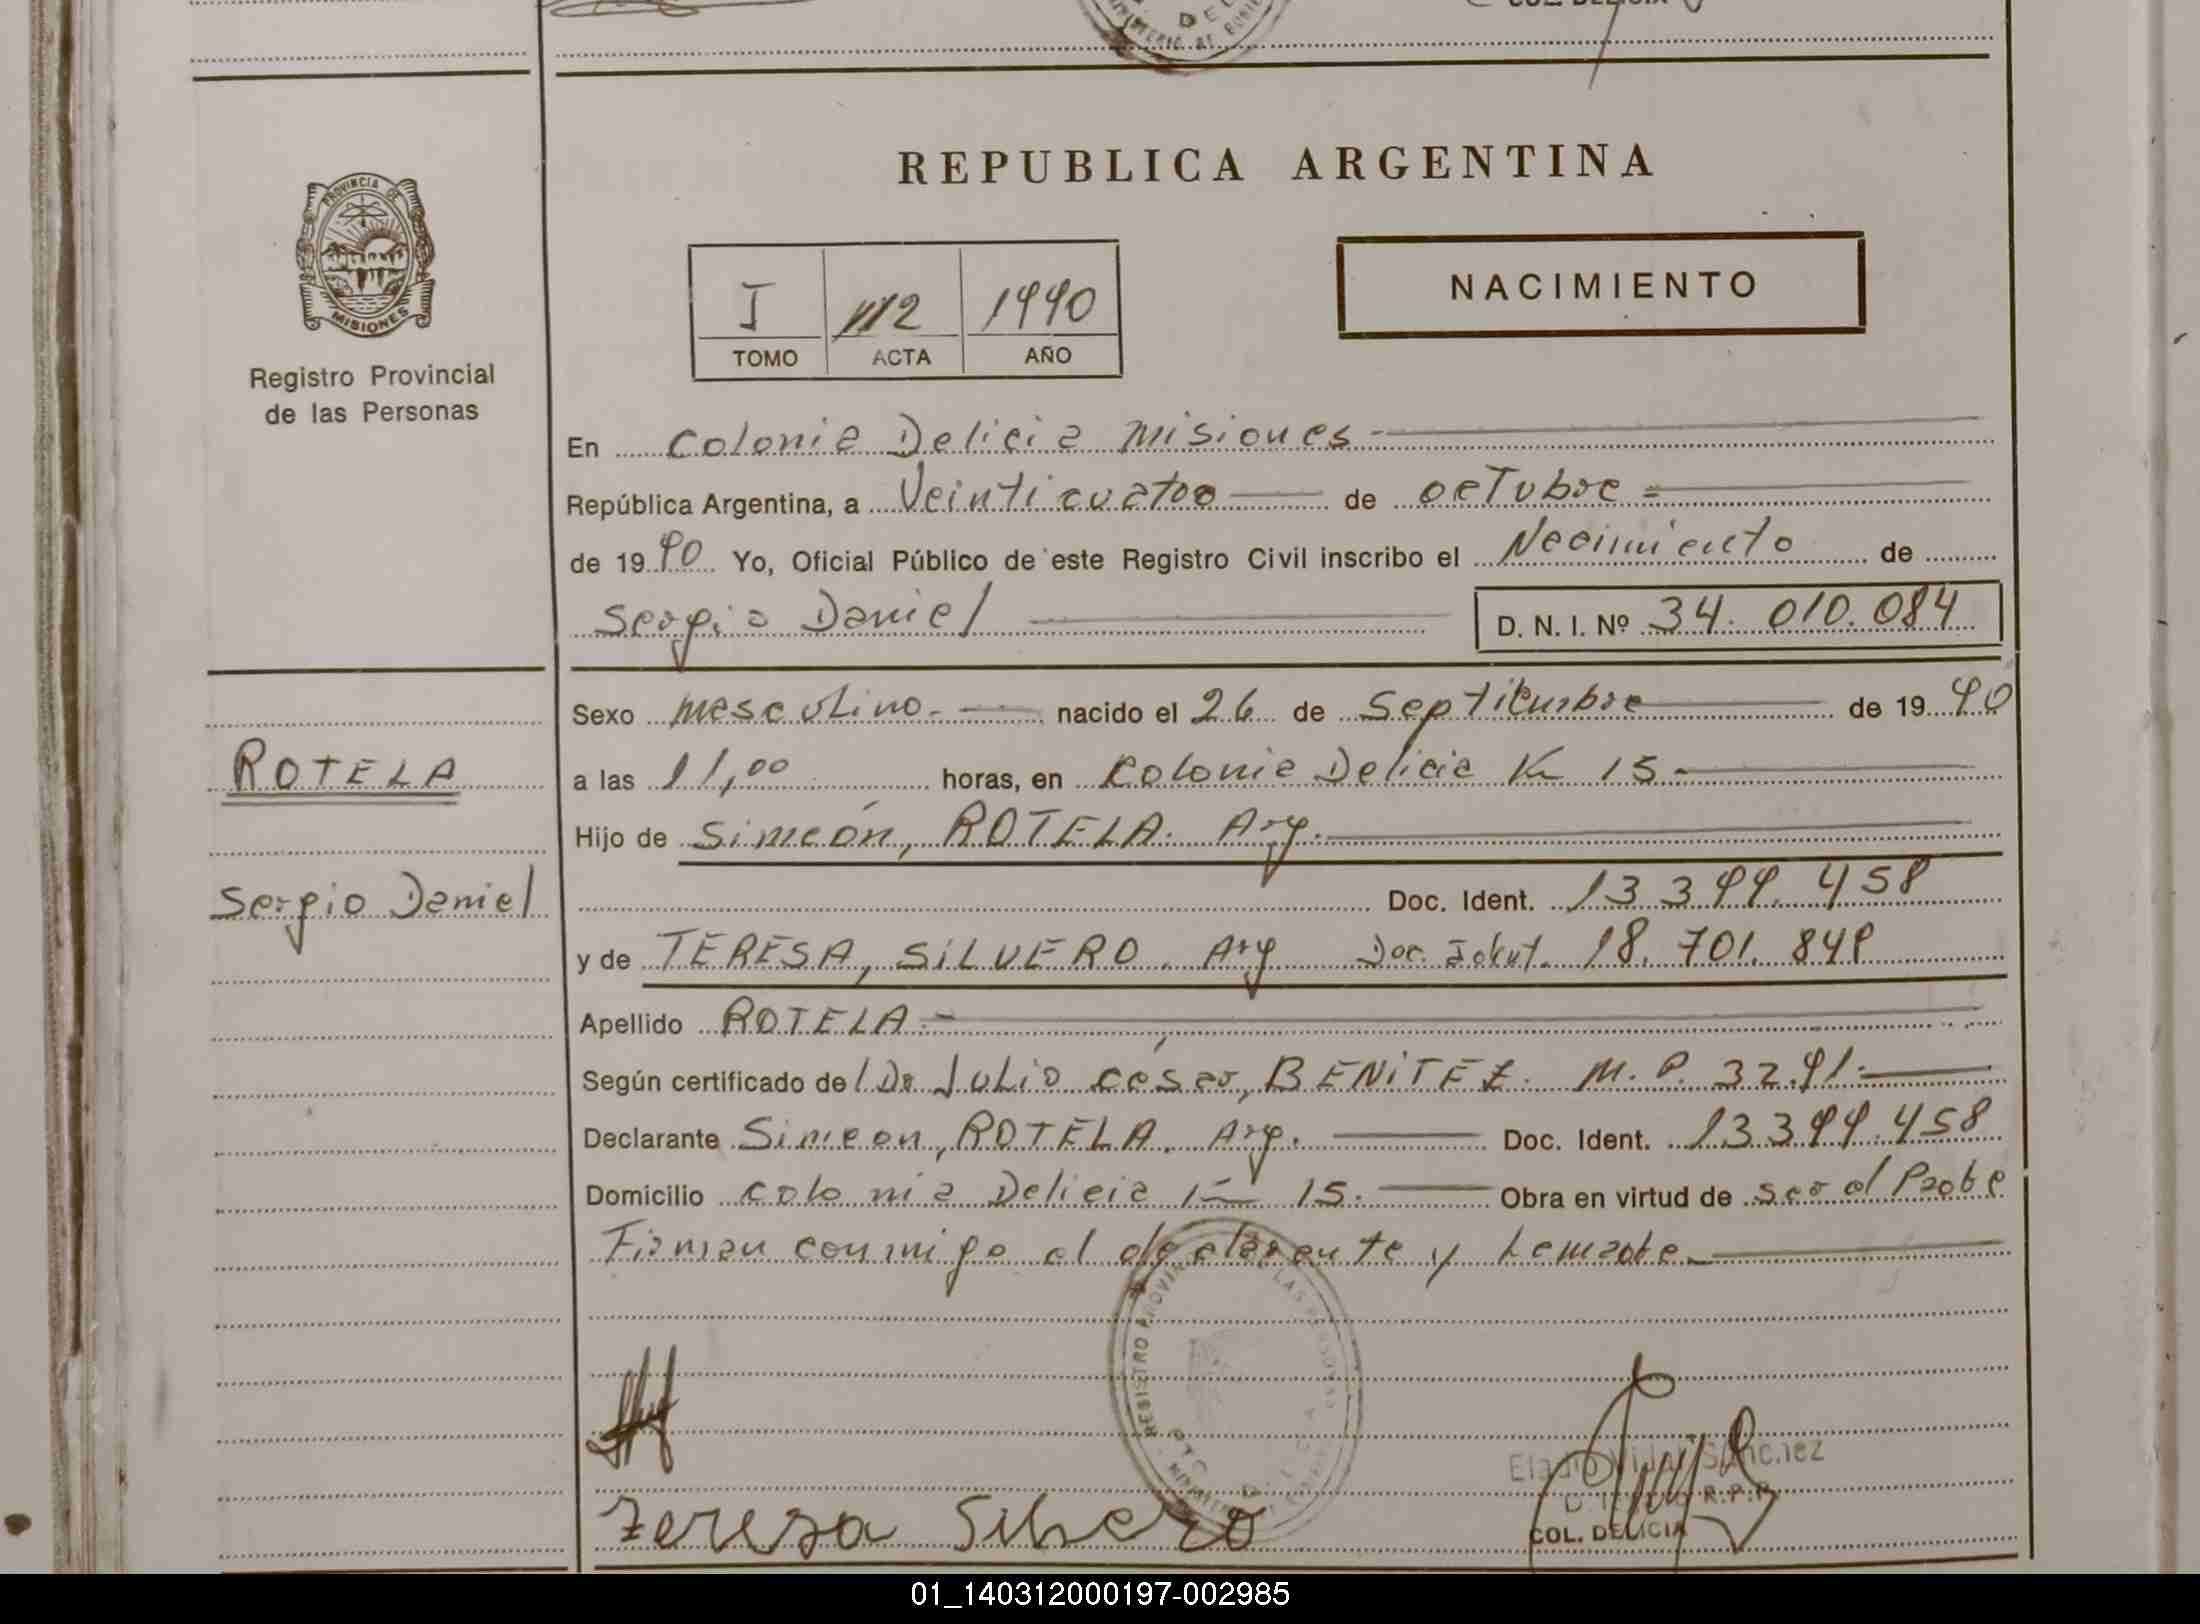 COL. DELICIA
REPUBLICA ARGENTINA
PROVINCIA DE
MISIONES
Registro Provincial
de las Personas
I 112 1990
TOMO ACTA AÑO
NACIMIENTO
En Colonia Delicia Misiones
República Argentina, a Veinticuatro de octubre
de 1990 Yo, Oficial Público de este Registro Civil inscribo el Nacimiento de
Sergio Daniel D. N. I. Nº 34.010.084
Sexo masculino.- nacido el 26 de Septiembre de 1990
ROTELA
a las 11,00 horas, en Colonia Delicia K 15.-
Hijo de Simeón, ROTELA. Arg.
Sergio Daniel
Doc. Ident. 13 399.458
y de TERESA, SILVERO. Arg Doc. Ident. 18.701.849
Apellido ROTELA.-
Según certificado del Dr Julio césar, BENITEZ. M.P. 32.91.-
Declarante Simeon, ROTELA. Arg. Doc. Ident. 13.399.458
Domicilio colonia Delicia K 15. Obra en virtud de ser el Padre
Firman conmigo el declarante y la madre.-
REGISTRO PROVINCIAL DE LAS PERSONAS
Teresa Silvero
Eladio Vidal Sánchez
R.P.P.
COL. DELICIA
01_140312000197-002985